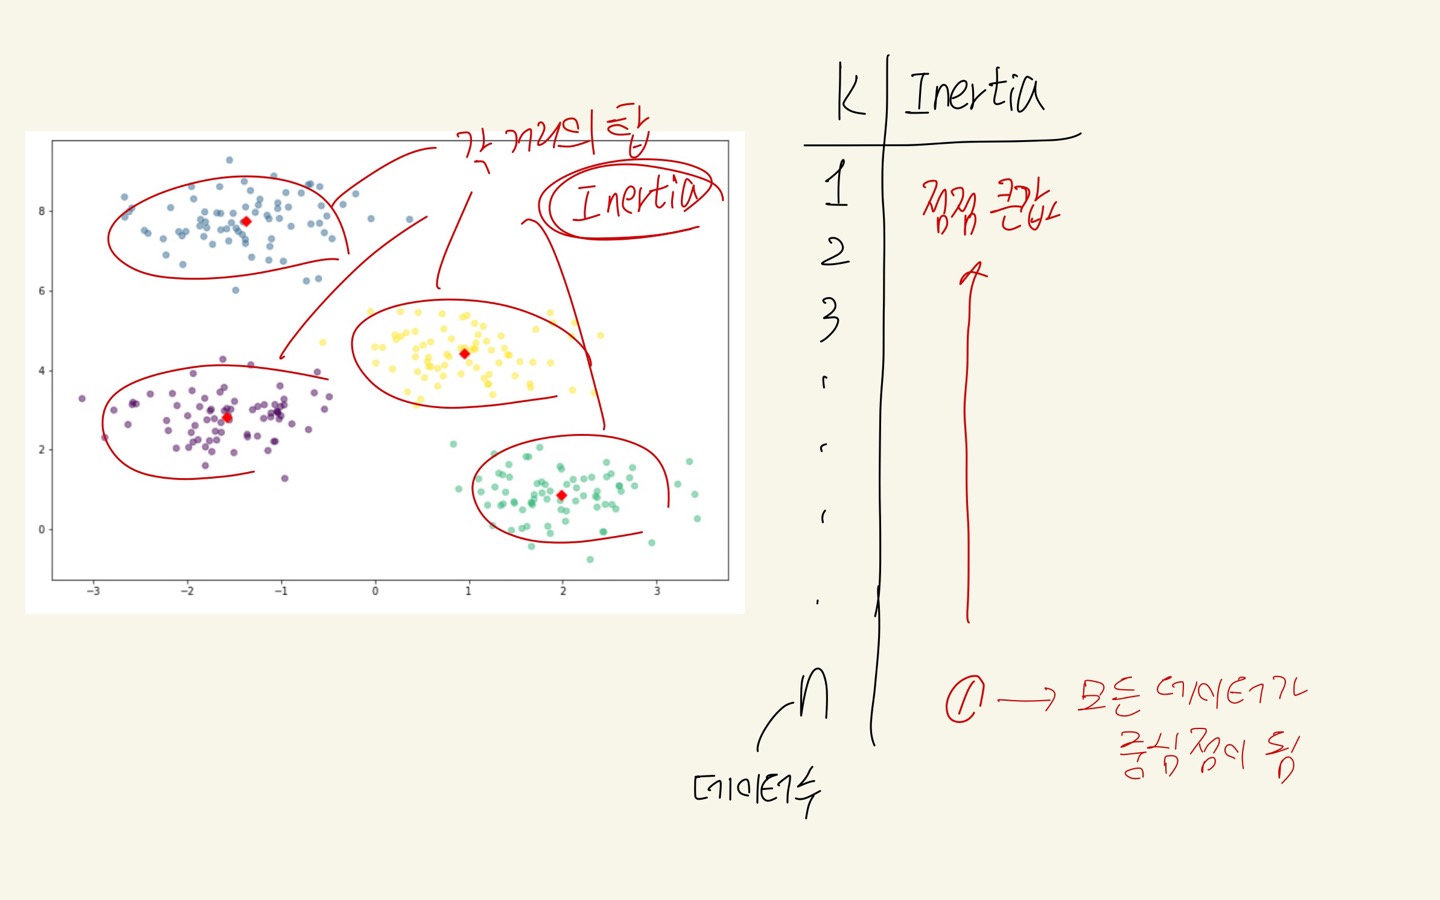 각 거리의 합
Inertia
8
6
4
2
0
−3 −2 −1 0 1 2 3
K Inertia
1 점점 큰값
2
3
n
데이터수
모든 데이터가
중심점이 됨